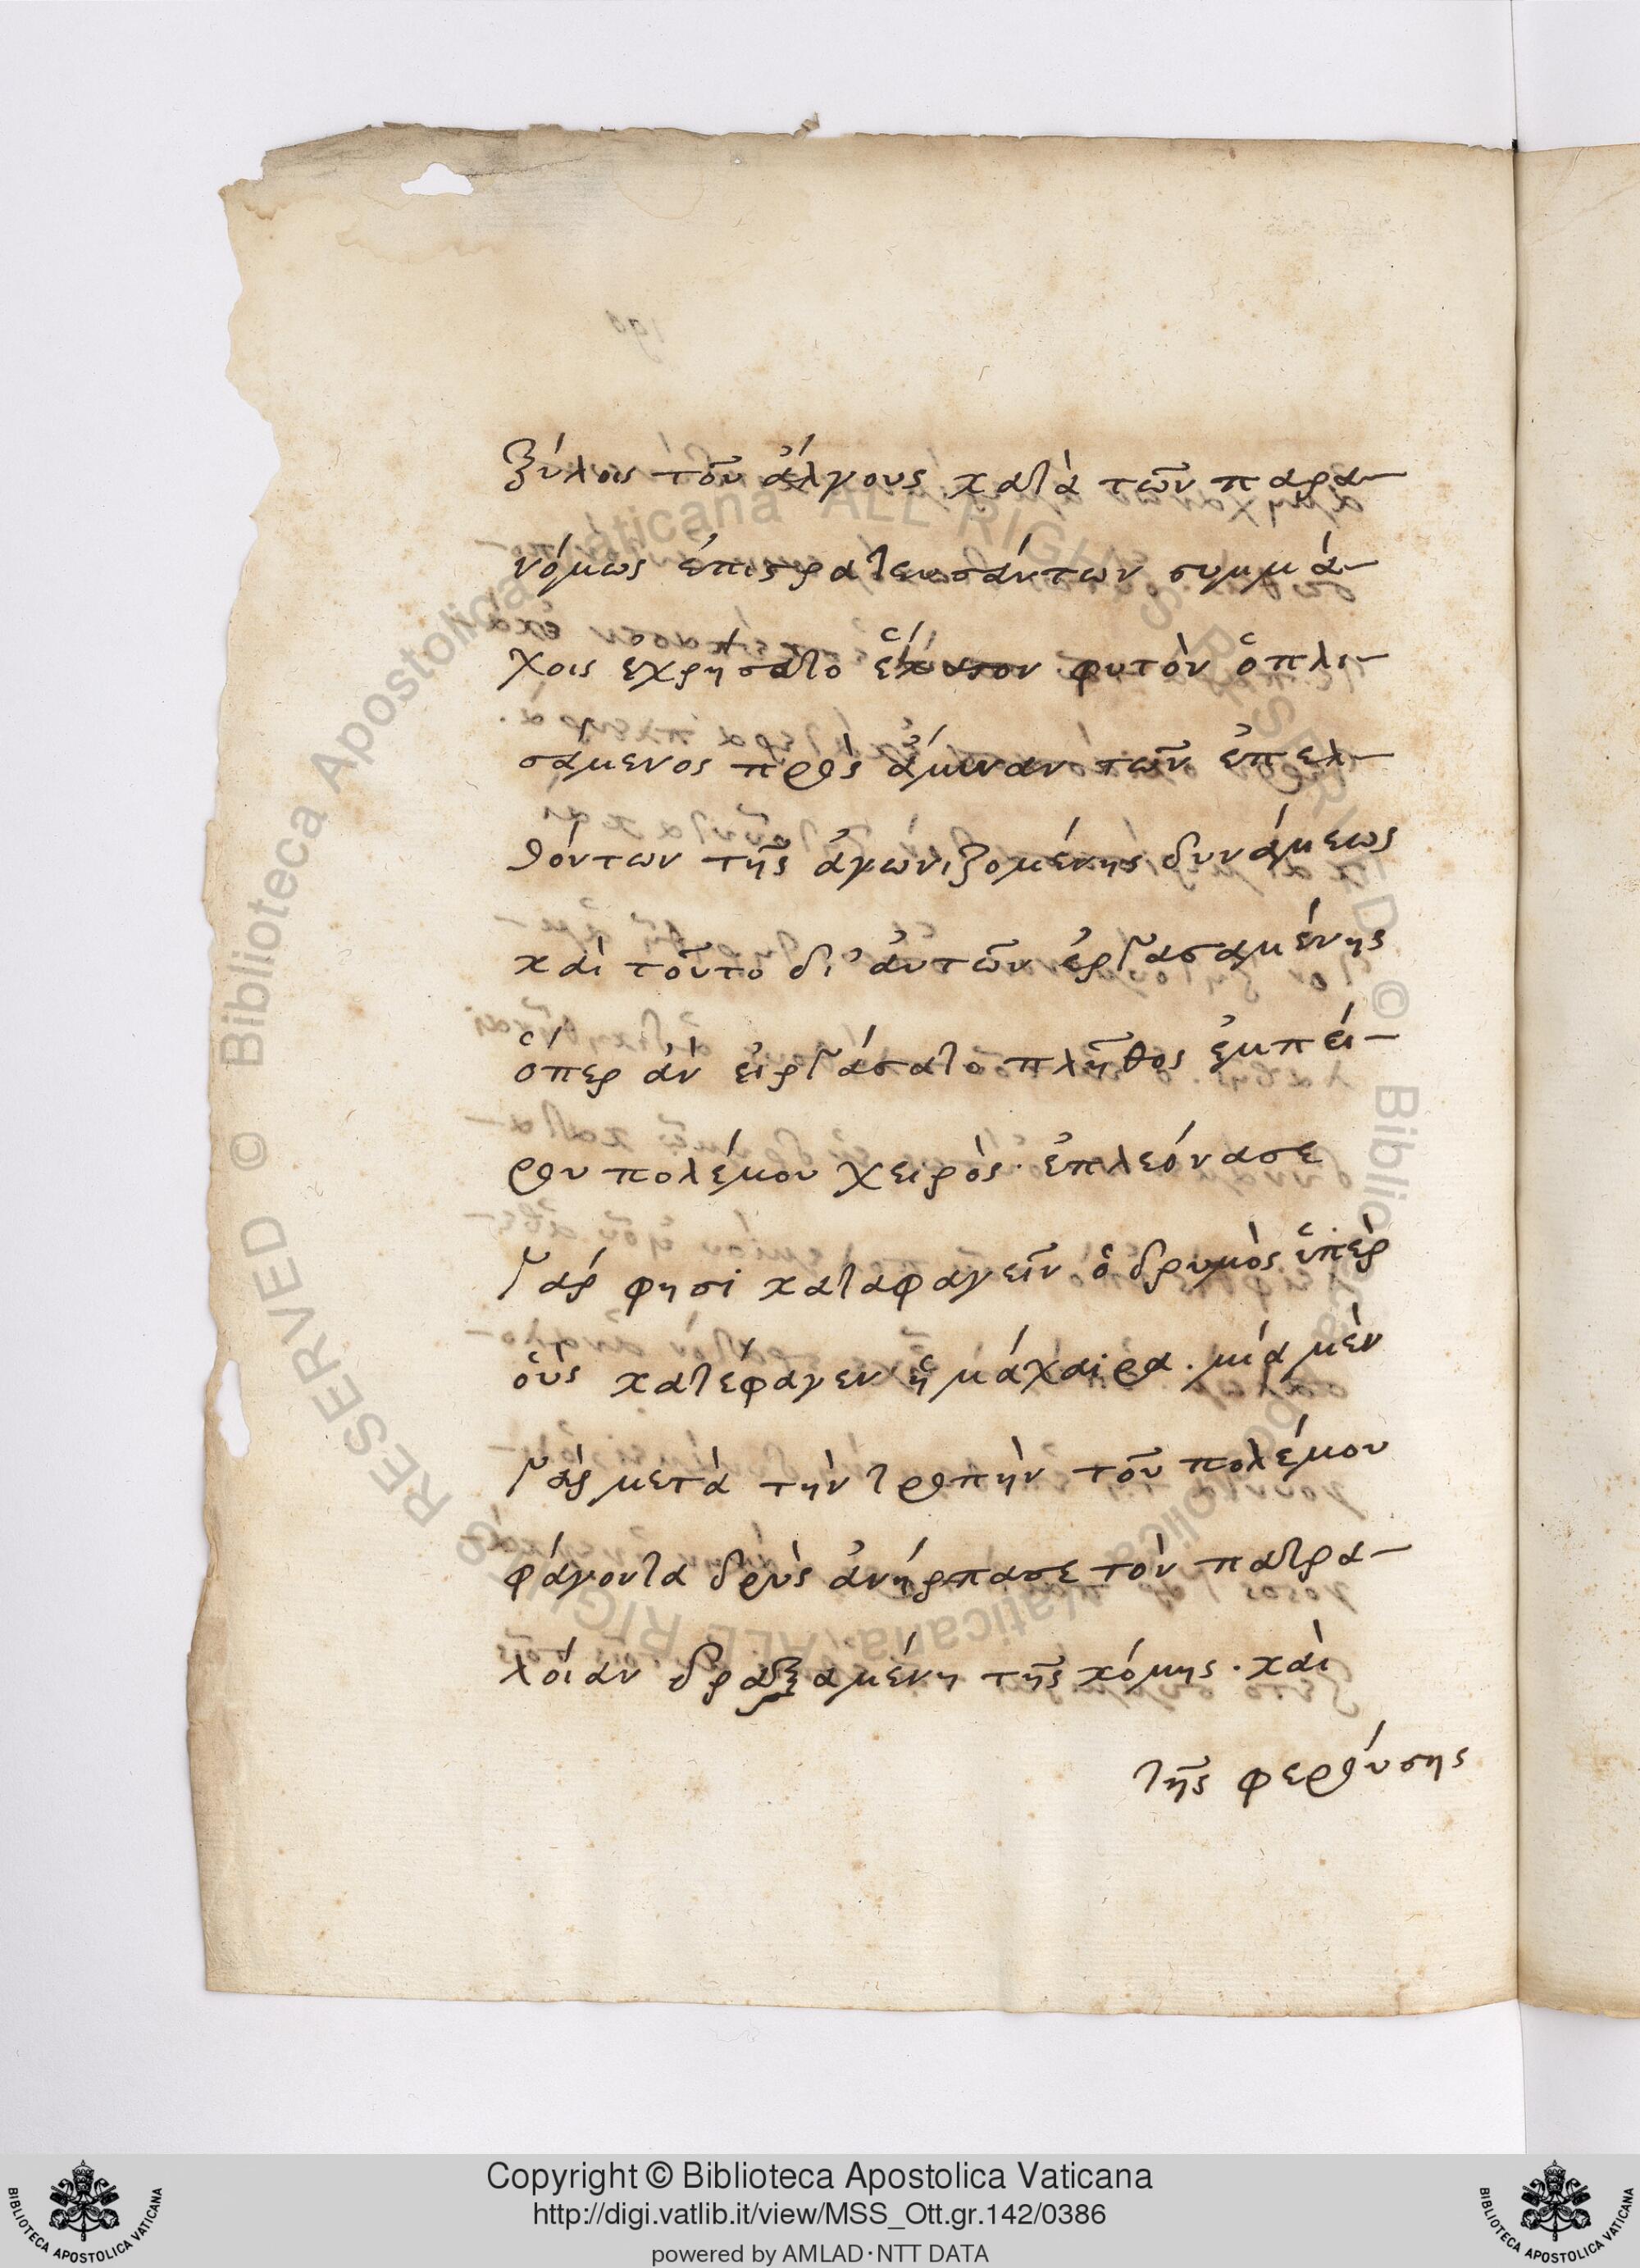 ξύλοις τοῦ ἄλγους κατὰ τῶν παρα-
νόμως ἐπιστρατευσάντων συμμά-
χοις ἐχρήσατο ἕκαστον φυτὸν ὁπλι-
σάμενος πρὸς ἄμυναν τῶν ἐπελ-
θόντων τῆς ἀγωνιζομένης δυνάμεως
καὶ τοῦτο δι' αὐτῶν ἐργασαμένης
ὅπερ ἂν εἰργάσατο πλῆθος ἐμπεί-
ρου πολέμου χειρὸς· ἐπλεόνασε
γάρ φησι καταφαγεῖν ὁ δρυμὸς ὑπὲρ
οὓς κατέφαγεν ἡ μάχαιρα. μία μὲν
γὰρ μετὰ τὴν τροπὴν τοῦ πολέμου
φάγοντα δρῦς ἀνήρπασε τὸν πατρα-
λοίαν δραξαμένη τῆς κόμης. καὶ
τῆς φερούσης
Copyright © Biblioteca Apostolica Vaticana
http://digi.vatlib.it/view/MSS_Ott.gr.142/0386
powered by AMLAD·NTT DATA
BIBLIOTECA APOSTOLICA VATICANA
BIBLIOTECA APOSTOLICA VATICANA